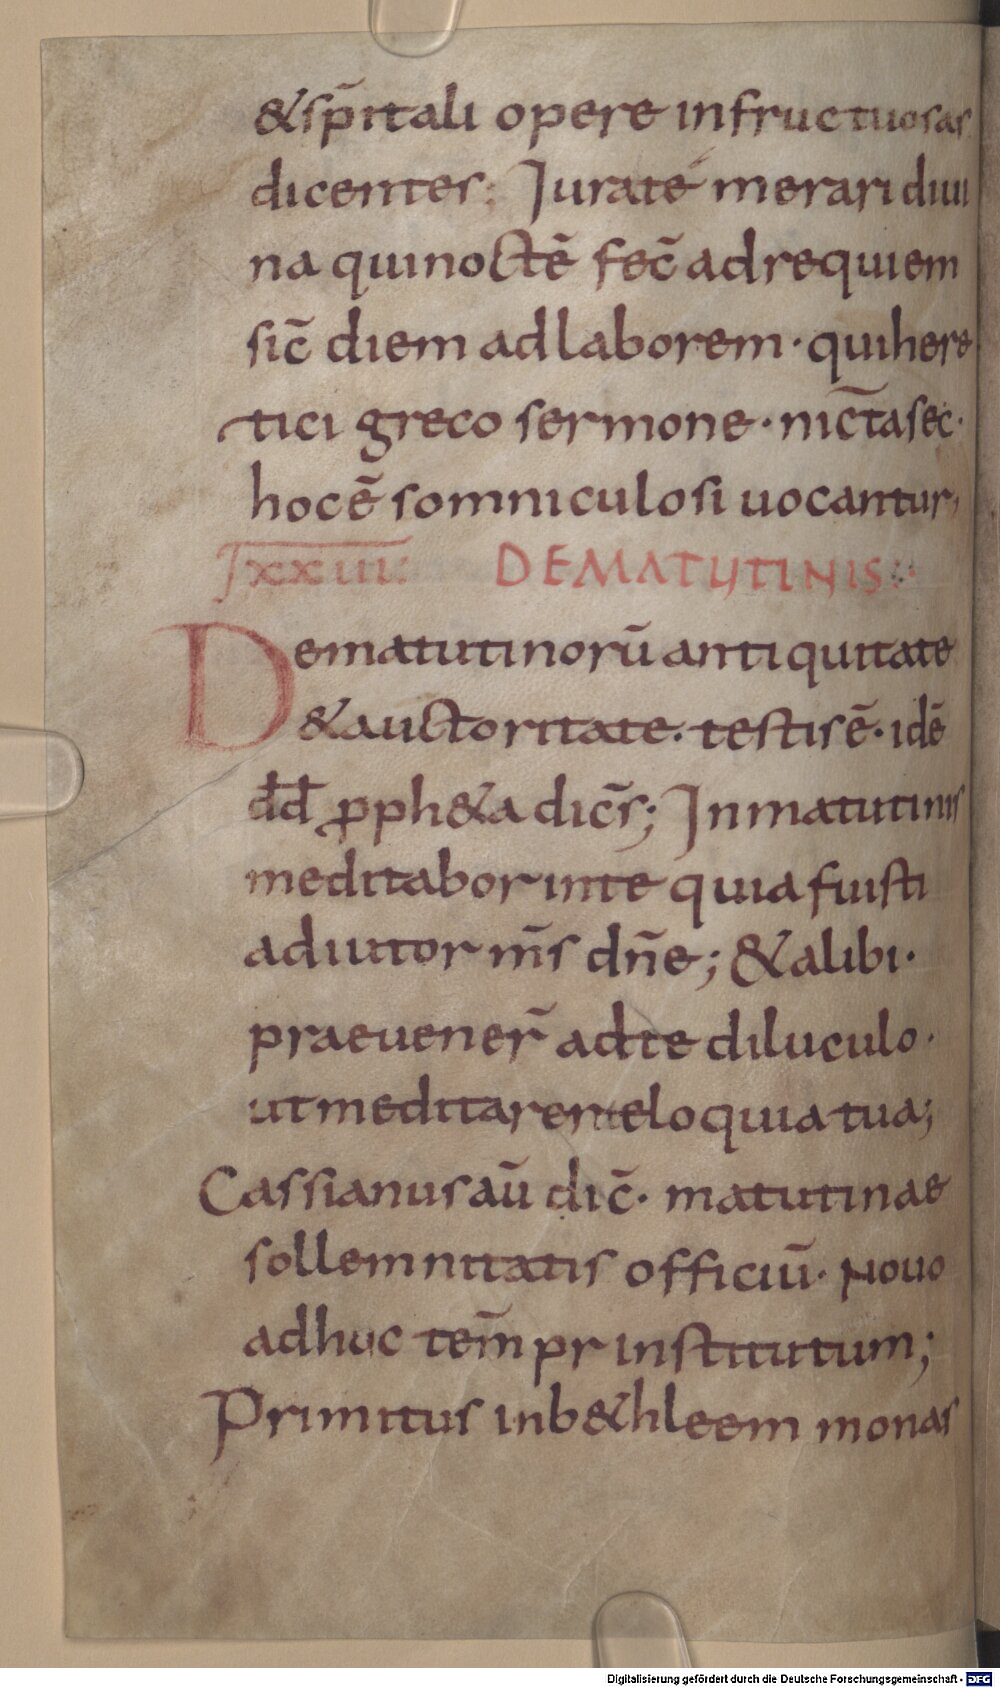 &sp̄ritali opere infructuosas
dicentes; Iurate merari diui
na qui noctē fec̄ ad requiem
sic̄ diem ad laborem· qui here
tici greco sermone· nic̄tasec·
hoc ē somniculosi uocantur;
XXIIII: DE MATUTINIS:
De matutinorū antiquitate
& auctoritate· testis ē· idē
dd̄ pph&a dic̄s; In matutinis
meditabor in te quia fuisti
adiutor m̄s dn̄e; & alibi·
praeuener̄ ad te diluculo·
ut meditarer eloquia tua;
Cassianus aū dic̄· matutinae
sollemnitatis officiū· nouo
adhuc tem̄pr institutum;
Primitus in b&hleem monas
Digitalisierung gefördert durch die Deutsche Forschungsgemeinschaft - DFG